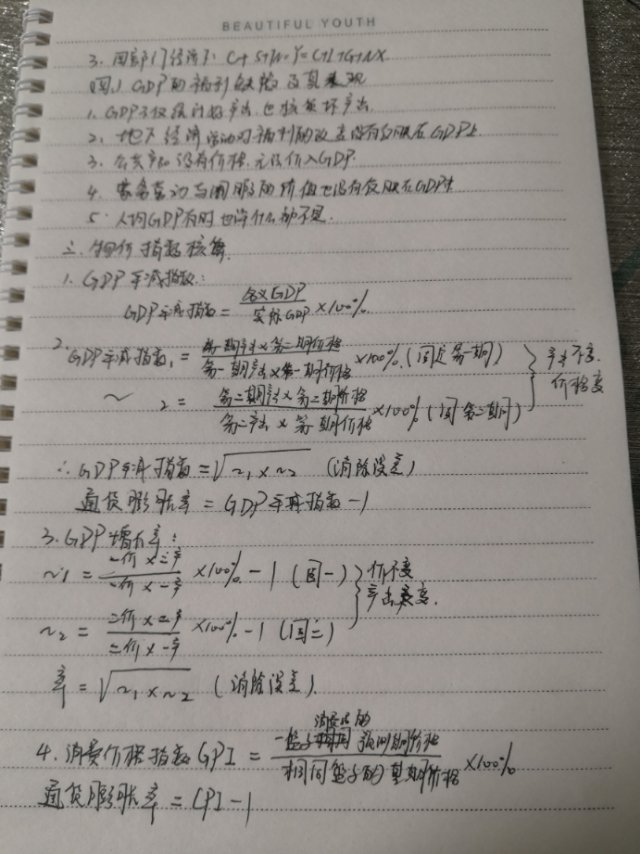 BEAUTIFUL YOUTH
3. 四部门经济下: C+S+T+M=Y=C+I+G+NX
四、GDP的福利缺陷及其表现
1. GDP不仅核计好产出,也核坏产出
2. 地下经济活动对福利的改善没有反映在GDP上
3. 公共产品没有价格,无法计入GDP.
4. 家务劳动与闲暇的价值也没有反映在GDP中
5. 人均GDP有时也说明不了什么
三、物价指数核算.
1. GDP平减指数:
GDP平减指数 = 名义GDP / 实际GDP ×100%
2. GDP平减指数1 = 第一期产出×第二期价格 / 第一期产出×第一期价格 ×100% (固定第一期)
~ 2 = 第二期产出×第二期价格 / 第二产出×第一期价格 ×100% (固第二期)
产出不变 价格变
∴ GDP平减指数 = √~1×~2 (消除误差)
通货膨胀率 = GDP平减指数 -1
3. GDP增长率:
~1 = 一价×二产 / 一价×一产 ×100% -1 (固一)
价不变 产出变.
~2 = 二价×二产 / 二价×一产 ×100% -1 (固二)
率 = √~1×~2 (消除误差).
4. 消费价格指数 CPI = 一篮子 消费品的 现期价格 / 相同篮子的基期价格 ×100%
通货膨胀率 = CPI -1